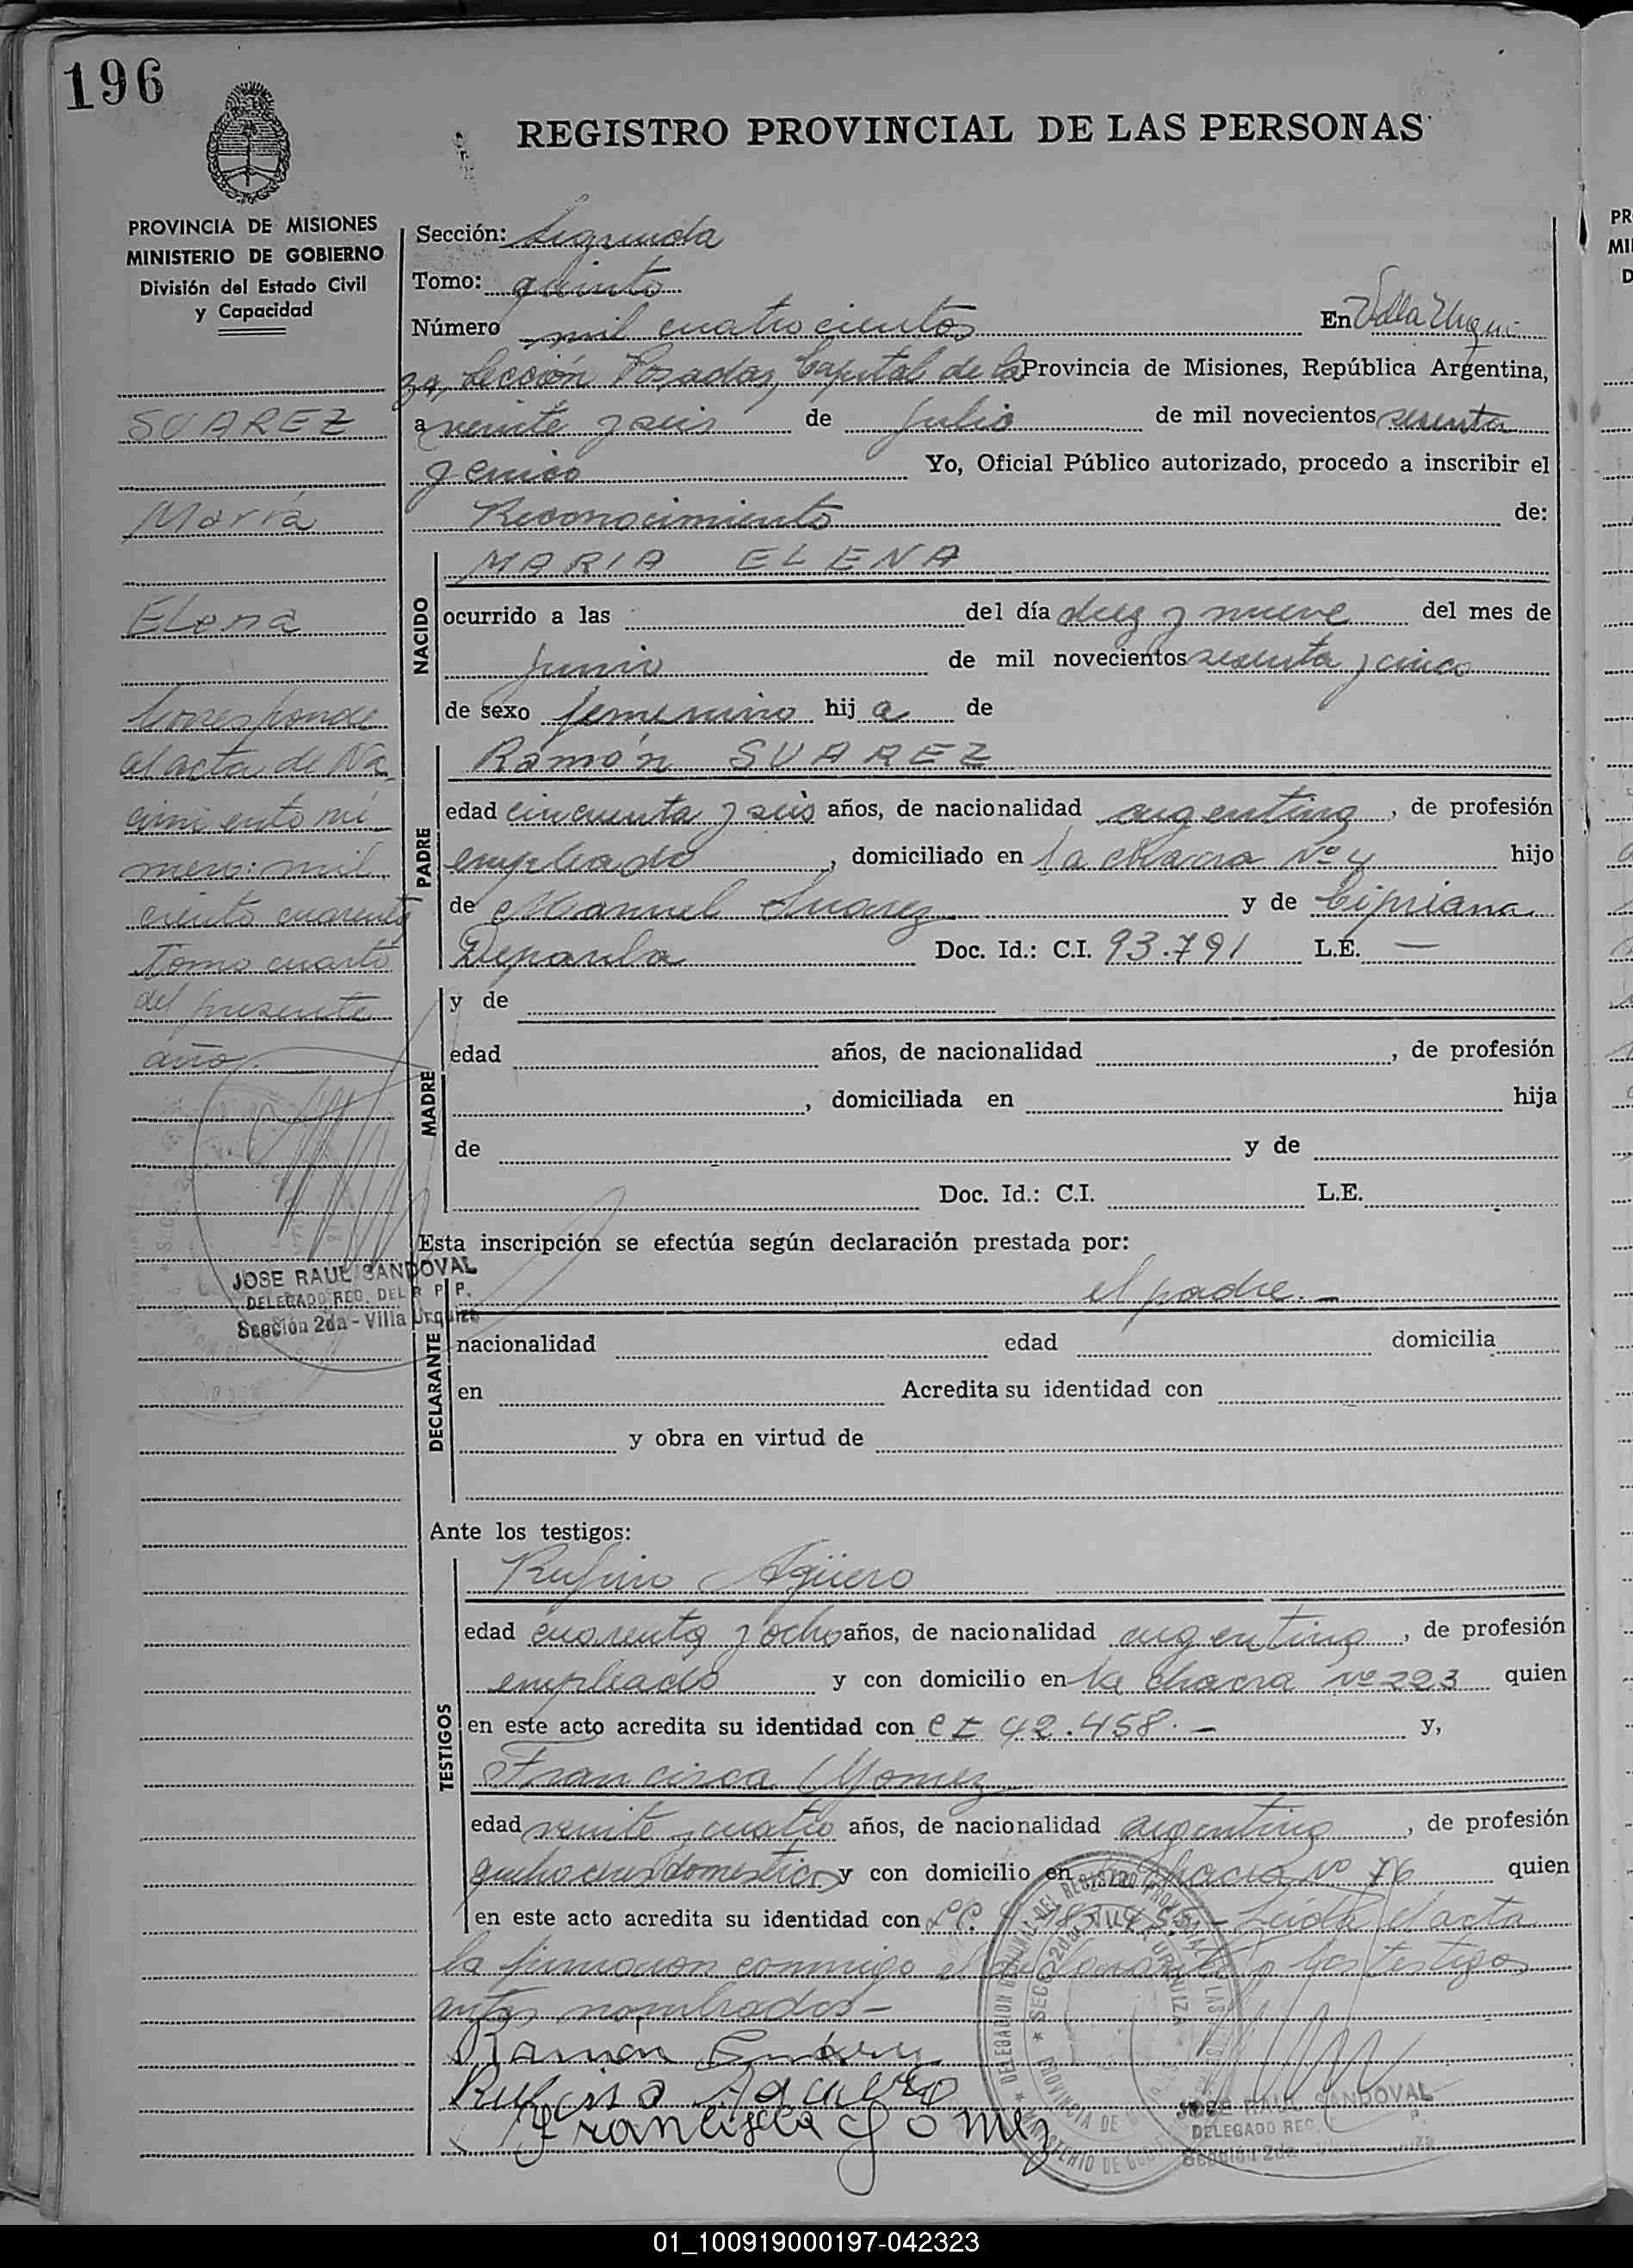 196
REGISTRO PROVINCIAL DE LAS PERSONAS
PROVINCIA DE MISIONES
MINISTERIO DE GOBIERNO
División del Estado Civil
y Capacidad
SUAREZ
María
Elena
Corresponde
al acta de Na
cimiento nú
mero: mil
ciento cuarenta
Tomo cuarto
del presente
año.
JOSE RAUL SANDOVAL
DELEGADO REG. DEL R P P.
Sección 2da - Villa Urquiza
Sección: Segunda
Tomo: quinto
Número mil cuatrocientos En Villa Urqui
za, Sección Posadas, Capital de la Provincia de Misiones, República Argentina,
a veinte y seis de Julio de mil novecientos sesenta
y cinco Yo, Oficial Público autorizado, procedo a inscribir el
Reconocimiento de:
NACIDO
MARIA ELENA
ocurrido a las del día diez y nueve del mes de
junio de mil novecientos sesenta y cinco
de sexo femenino hij a de
PADRE
Ramón SUAREZ
edad cincuenta y seis años, de nacionalidad argentina, de profesión
empleado, domiciliado en la chacra Nº 4 hijo
de Manuel Suarez y de Cipriana
Depaula Doc. Id.: C.I. 93.791 L.E. —
MADRE
y de
edad años, de nacionalidad , de profesión
, domiciliada en hija
de y de
Doc. Id.: C.I. L.E.
Esta inscripción se efectúa según declaración prestada por:
DECLARANTE
el padre. —
nacionalidad edad domicilia
en Acredita su identidad con
y obra en virtud de
Ante los testigos:
TESTIGOS
Rufino Agüero
edad cuarenta y ocho años, de nacionalidad argentina, de profesión
empleado y con domicilio en la chacra Nº 223 quien
en este acto acredita su identidad con CI 42.458. — y,
Francisca Gomez
edad veinte y cuatro años, de nacionalidad argentina, de profesión
quehaceres domesticos y con domicilio en chacra Nº 76 quien
en este acto acredita su identidad con Leída el acta
la firmaron conmigo el declarante y los testigos
antes nombrados —
Ramón
Rufino Aguero
Francisca Gomez
JOSE RAUL SANDOVAL
DELEGADO REG.
Sección 2da
01_100919000197-042323